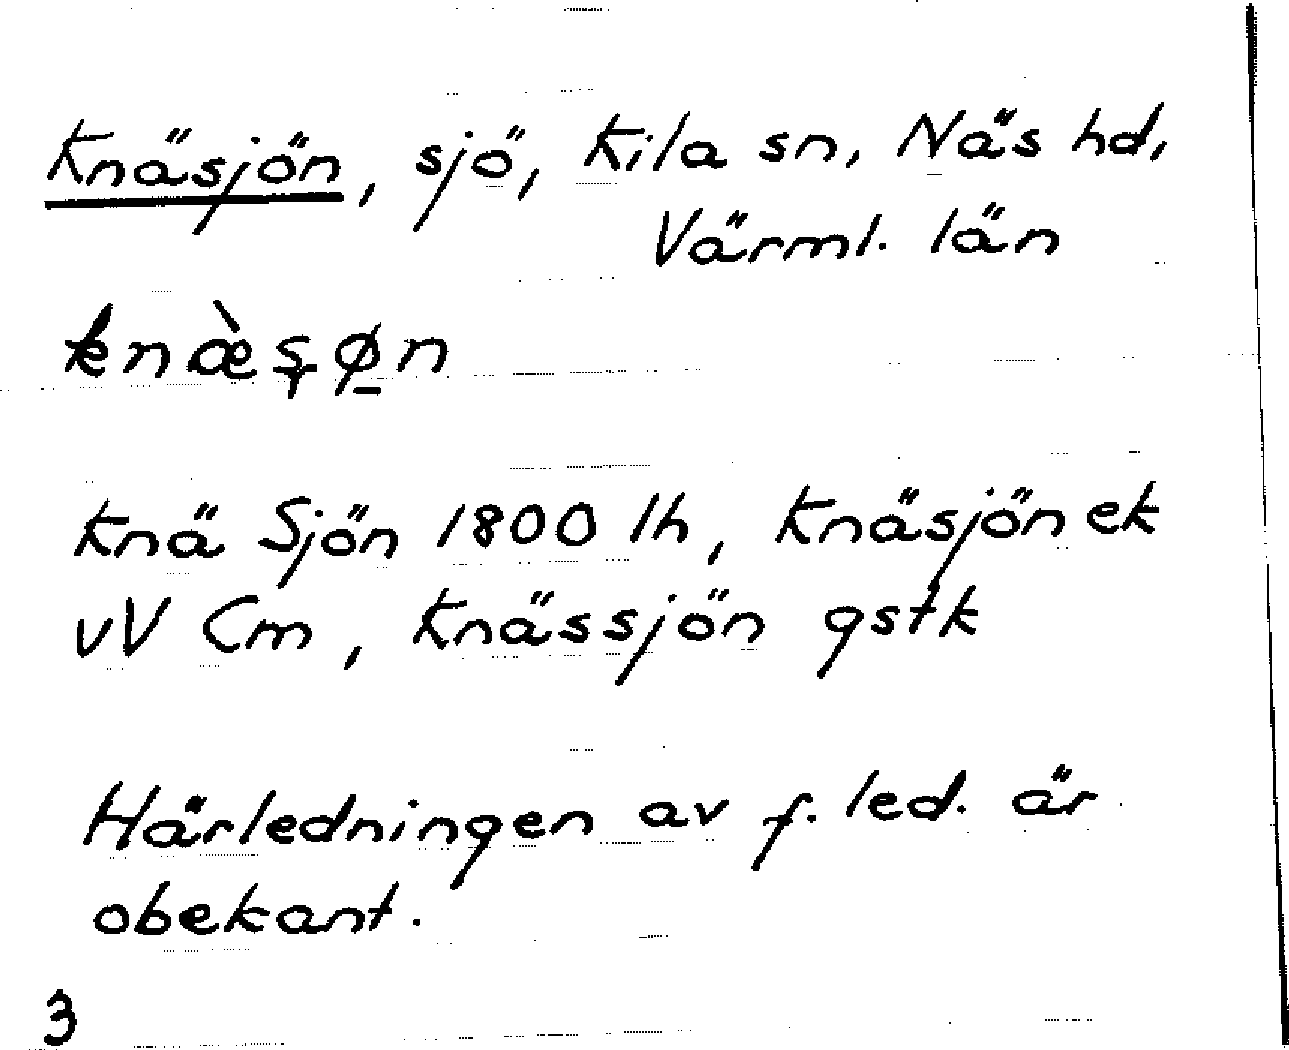 Knäsjön, sjö, Kila sn, Näs hd,
Värml. län
knæ̀şø̠n
Knä Sjön 1800 lh, Knäsjön ek
vV Cm, Knässjön gstk
Härledningen av f. led. är
obekant.
3